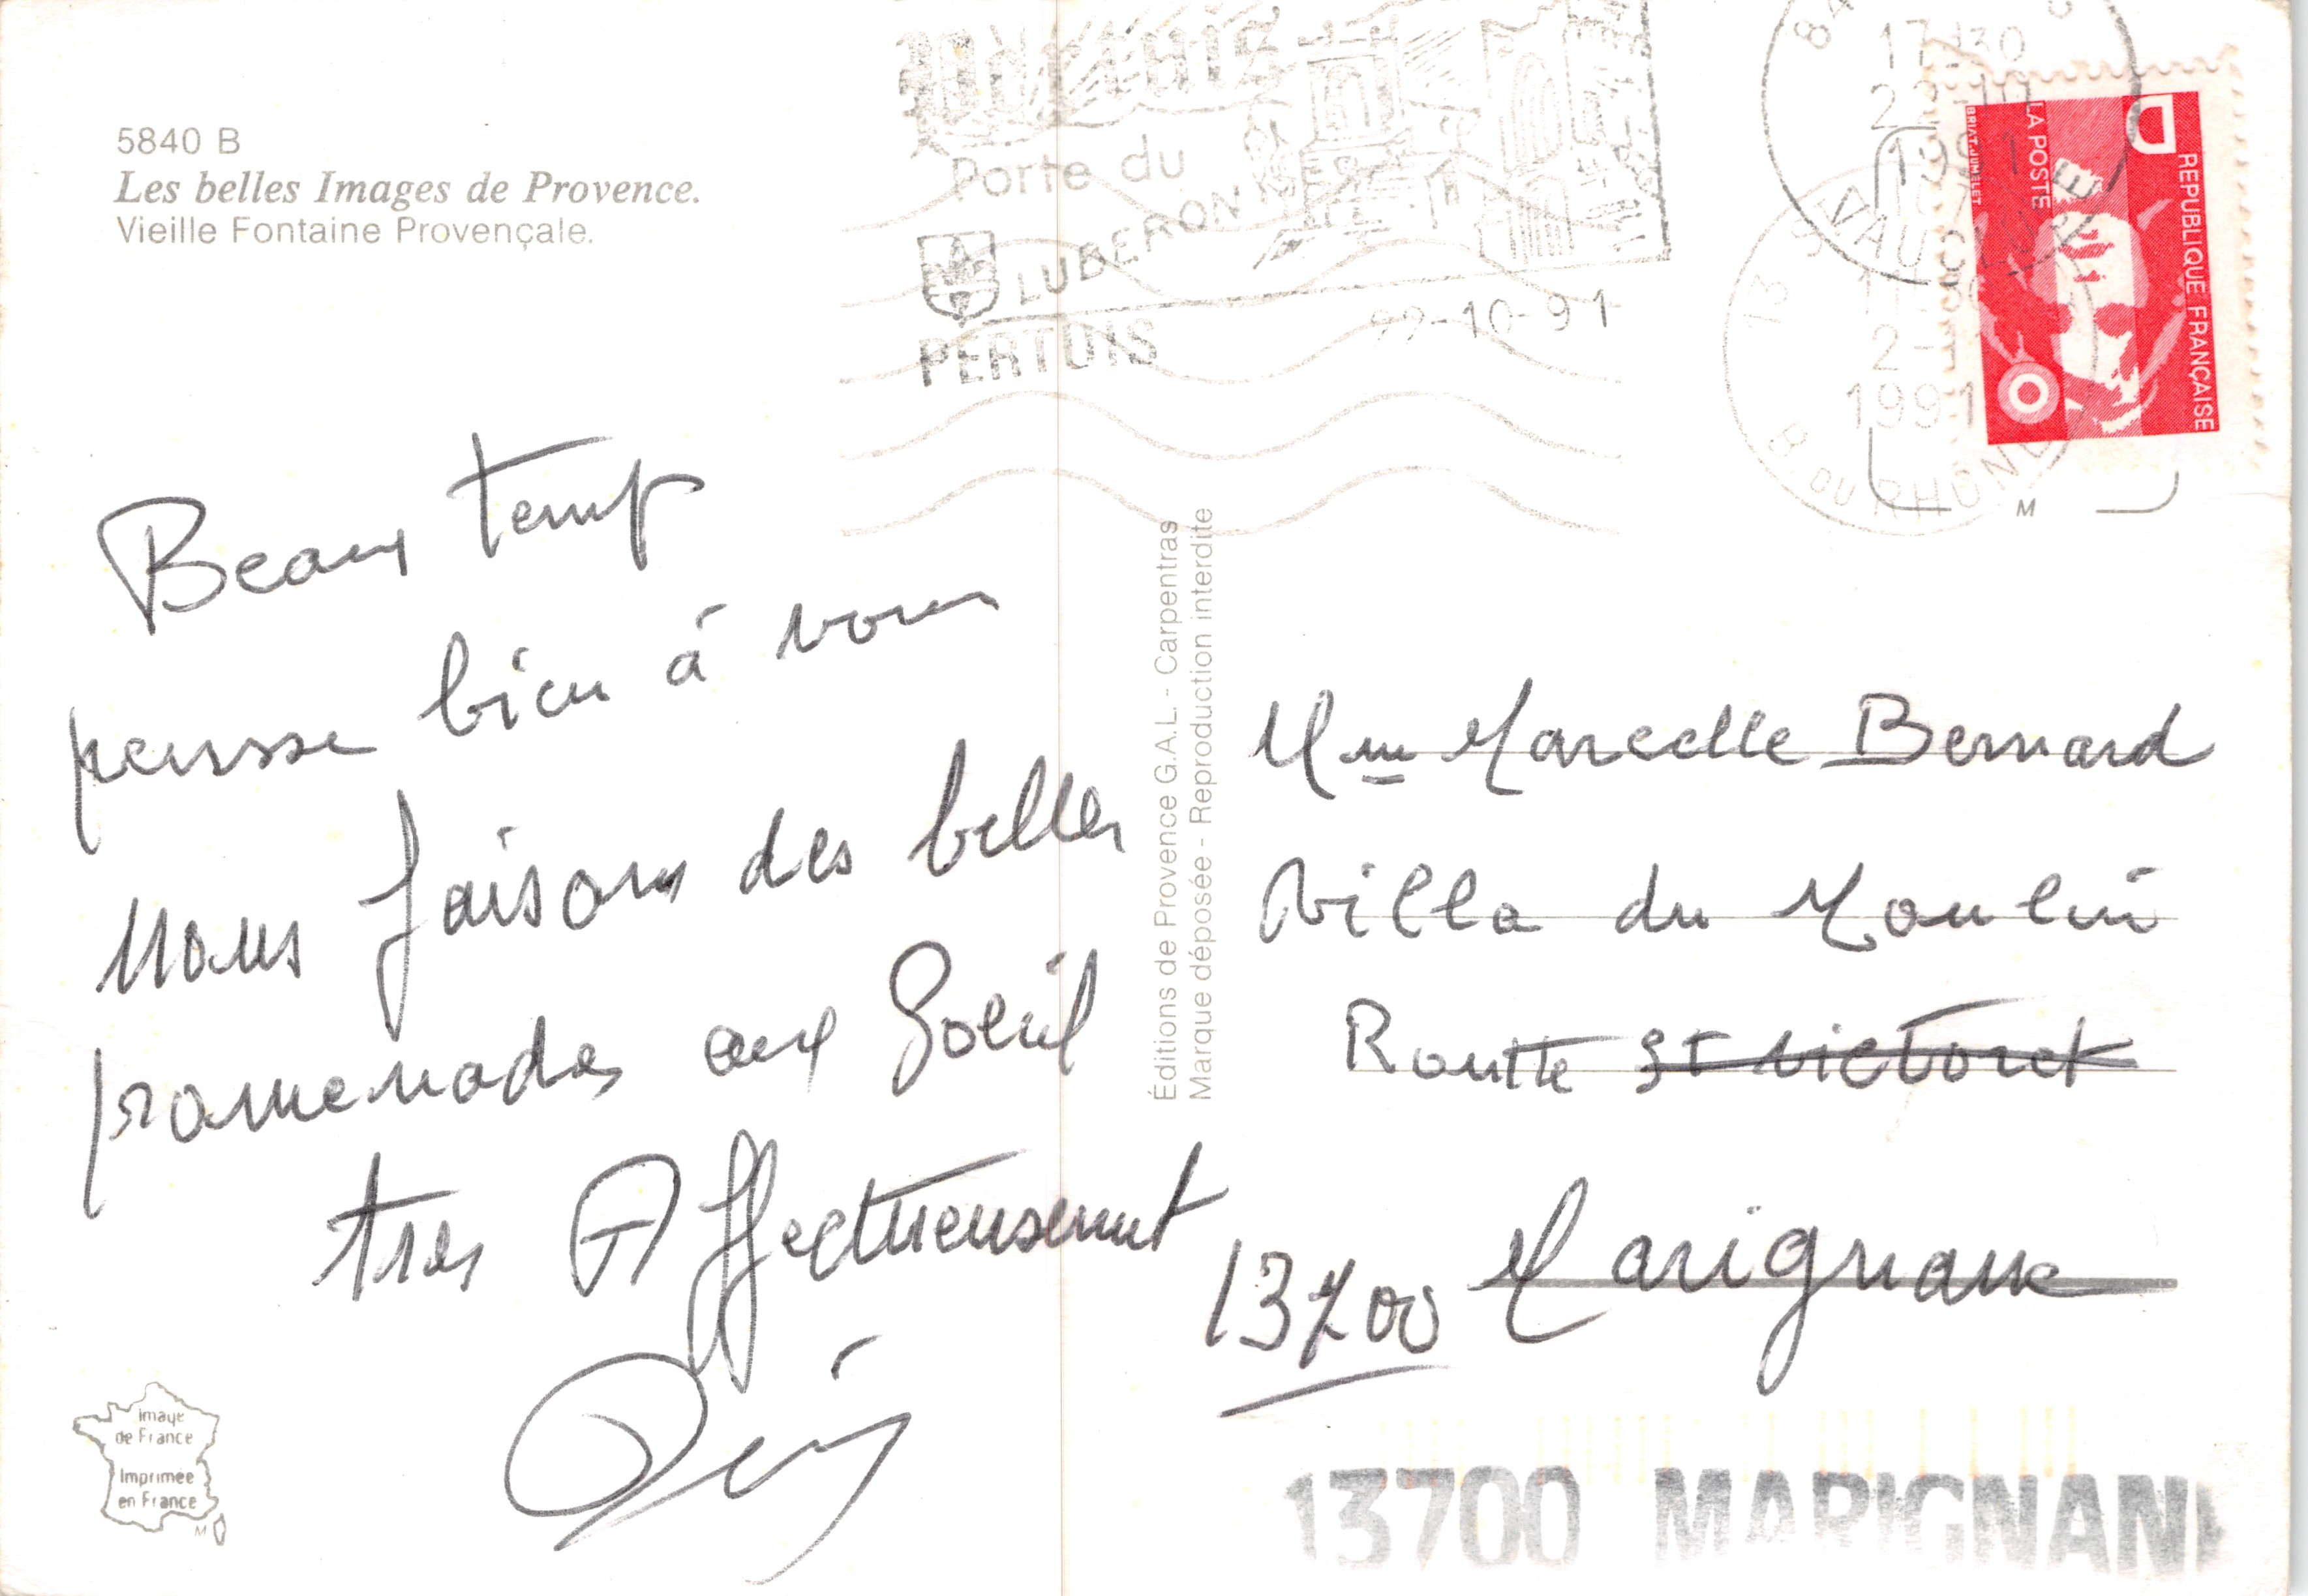 5840 B
Les belles Images de Provence.
Vieille Fontaine Provençale.
PERTUIS
Porte du
LUBERON
PERTUIS
22-10-91
84
17-30
22-10
1991
VAUCLUSE
13
2-
1991
B. DU RHONE
D
REPUBLIQUE FRANÇAISE
LA POSTE
BRIAT.JUMELET
M
Beaux temp
pensse bien à vous
nous faisons des belles
promenades aux Soleil
tres Affectueusement
Éditions de Provence G.A.L. - Carpentras
Marque déposée - Reproduction interdite
Mme Marcelle Bernard
Villa du Moulin
Routte St Victoret
13700 Marignane
13700 MARIGNAN
Image
de France
Imprimée
en France
M